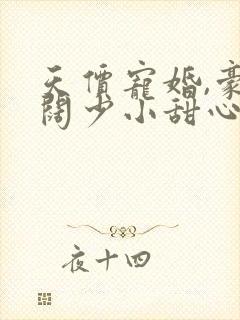 天價寵婚,豪
闊少小甜心
夜十四